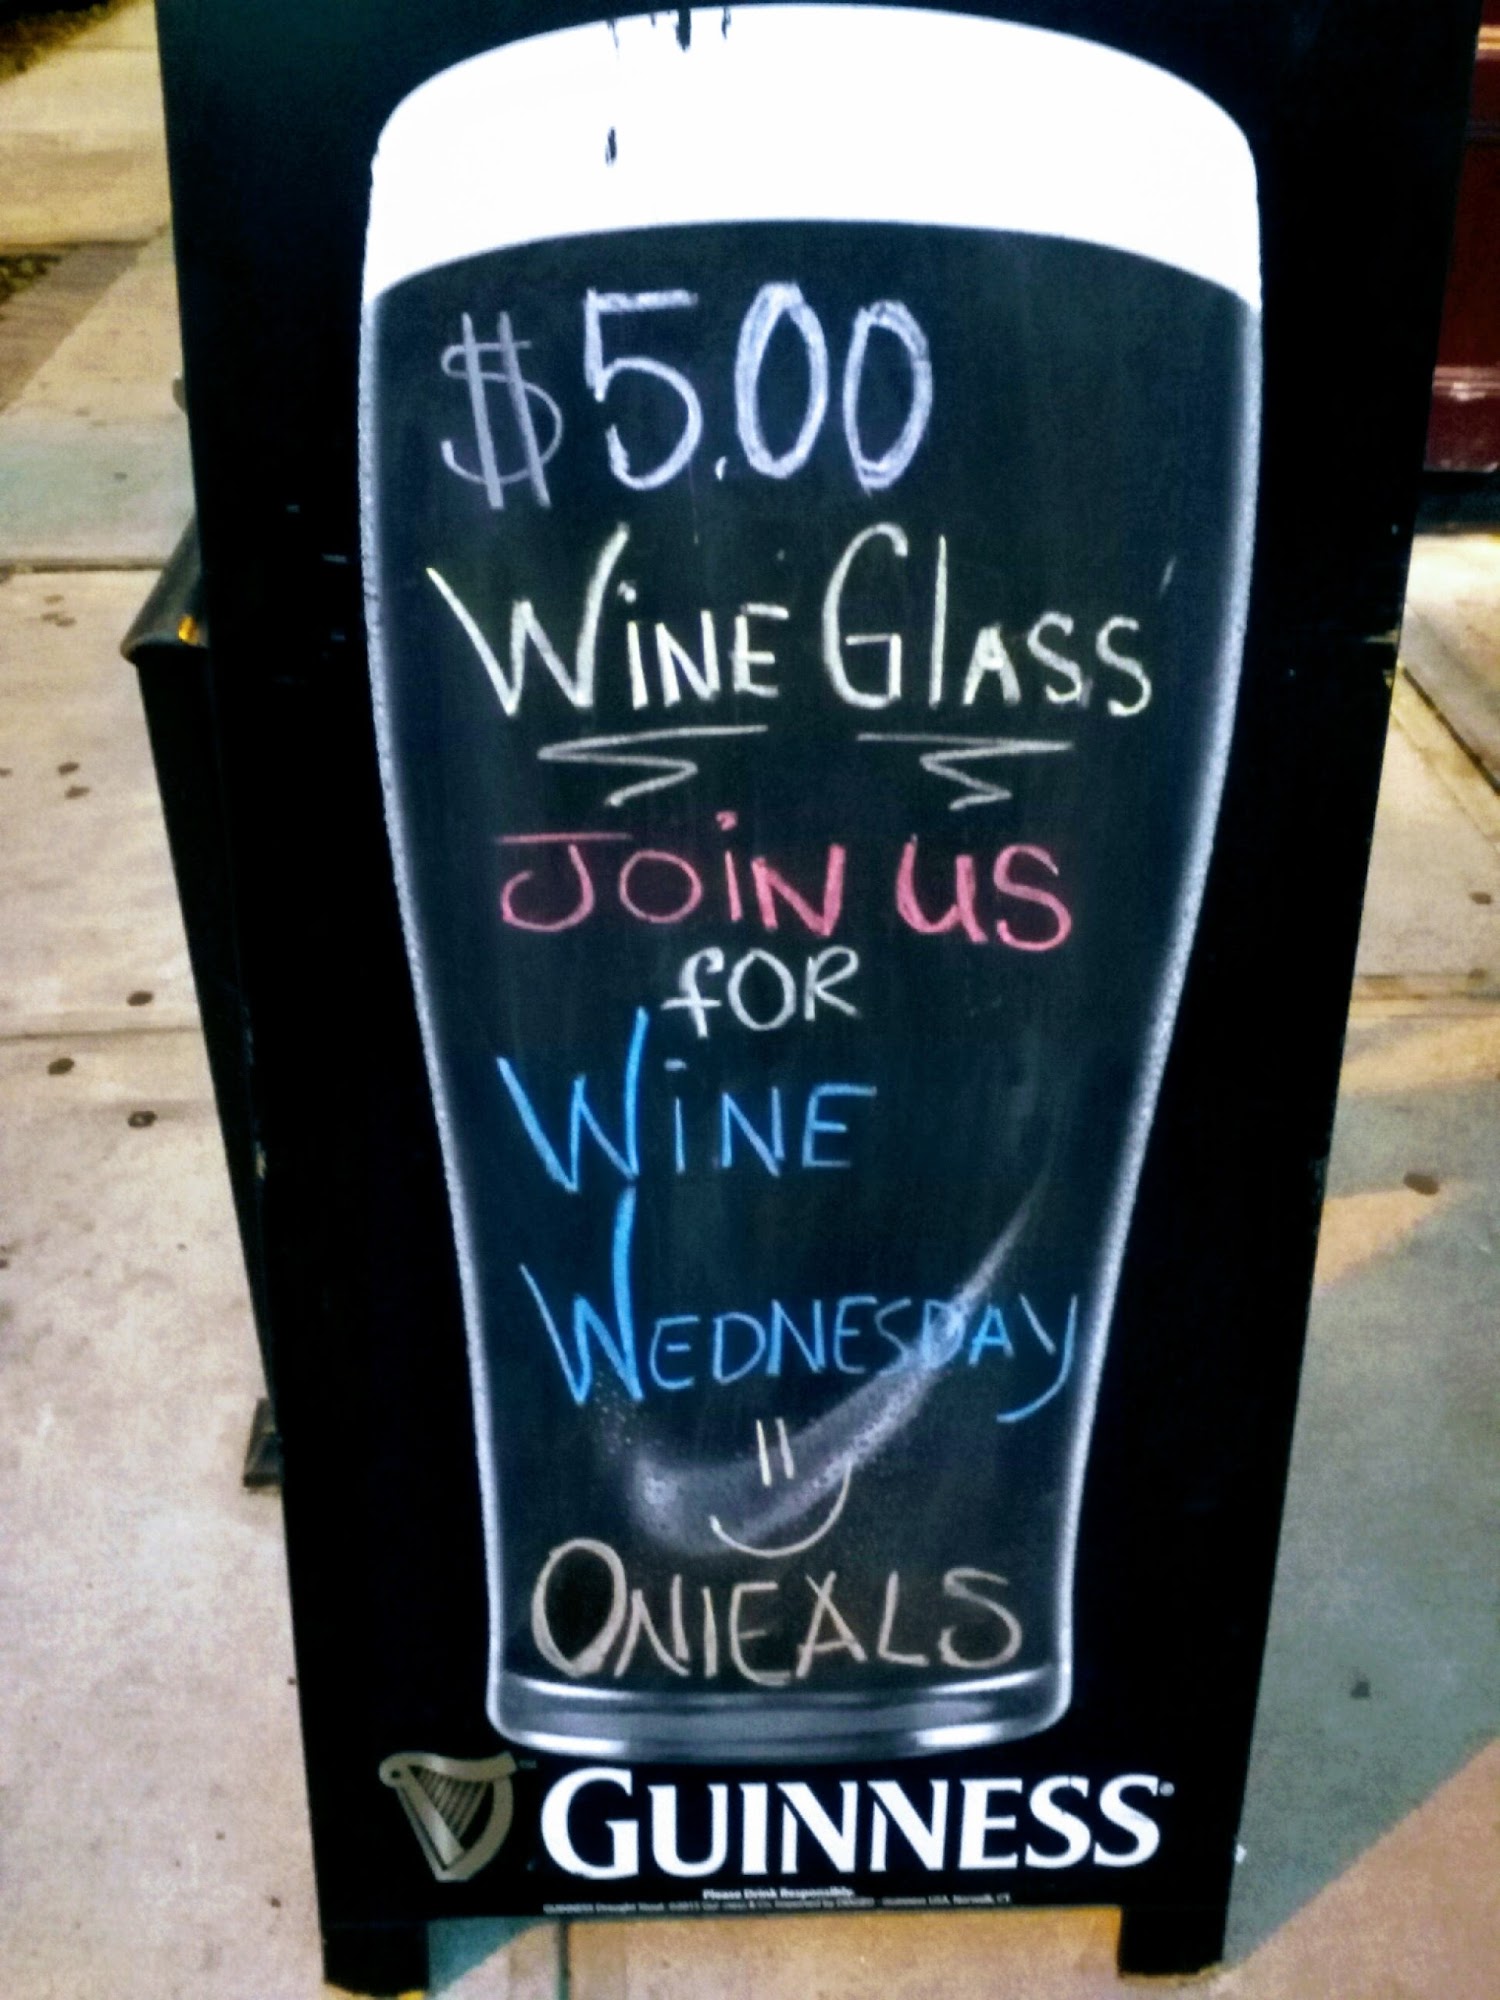 $5.00
WiNE GlASS
JOiN US
fOR
WiNE
WEDNESDAY
ONIEALS
GUINNESS
Please Drink Responsibly.